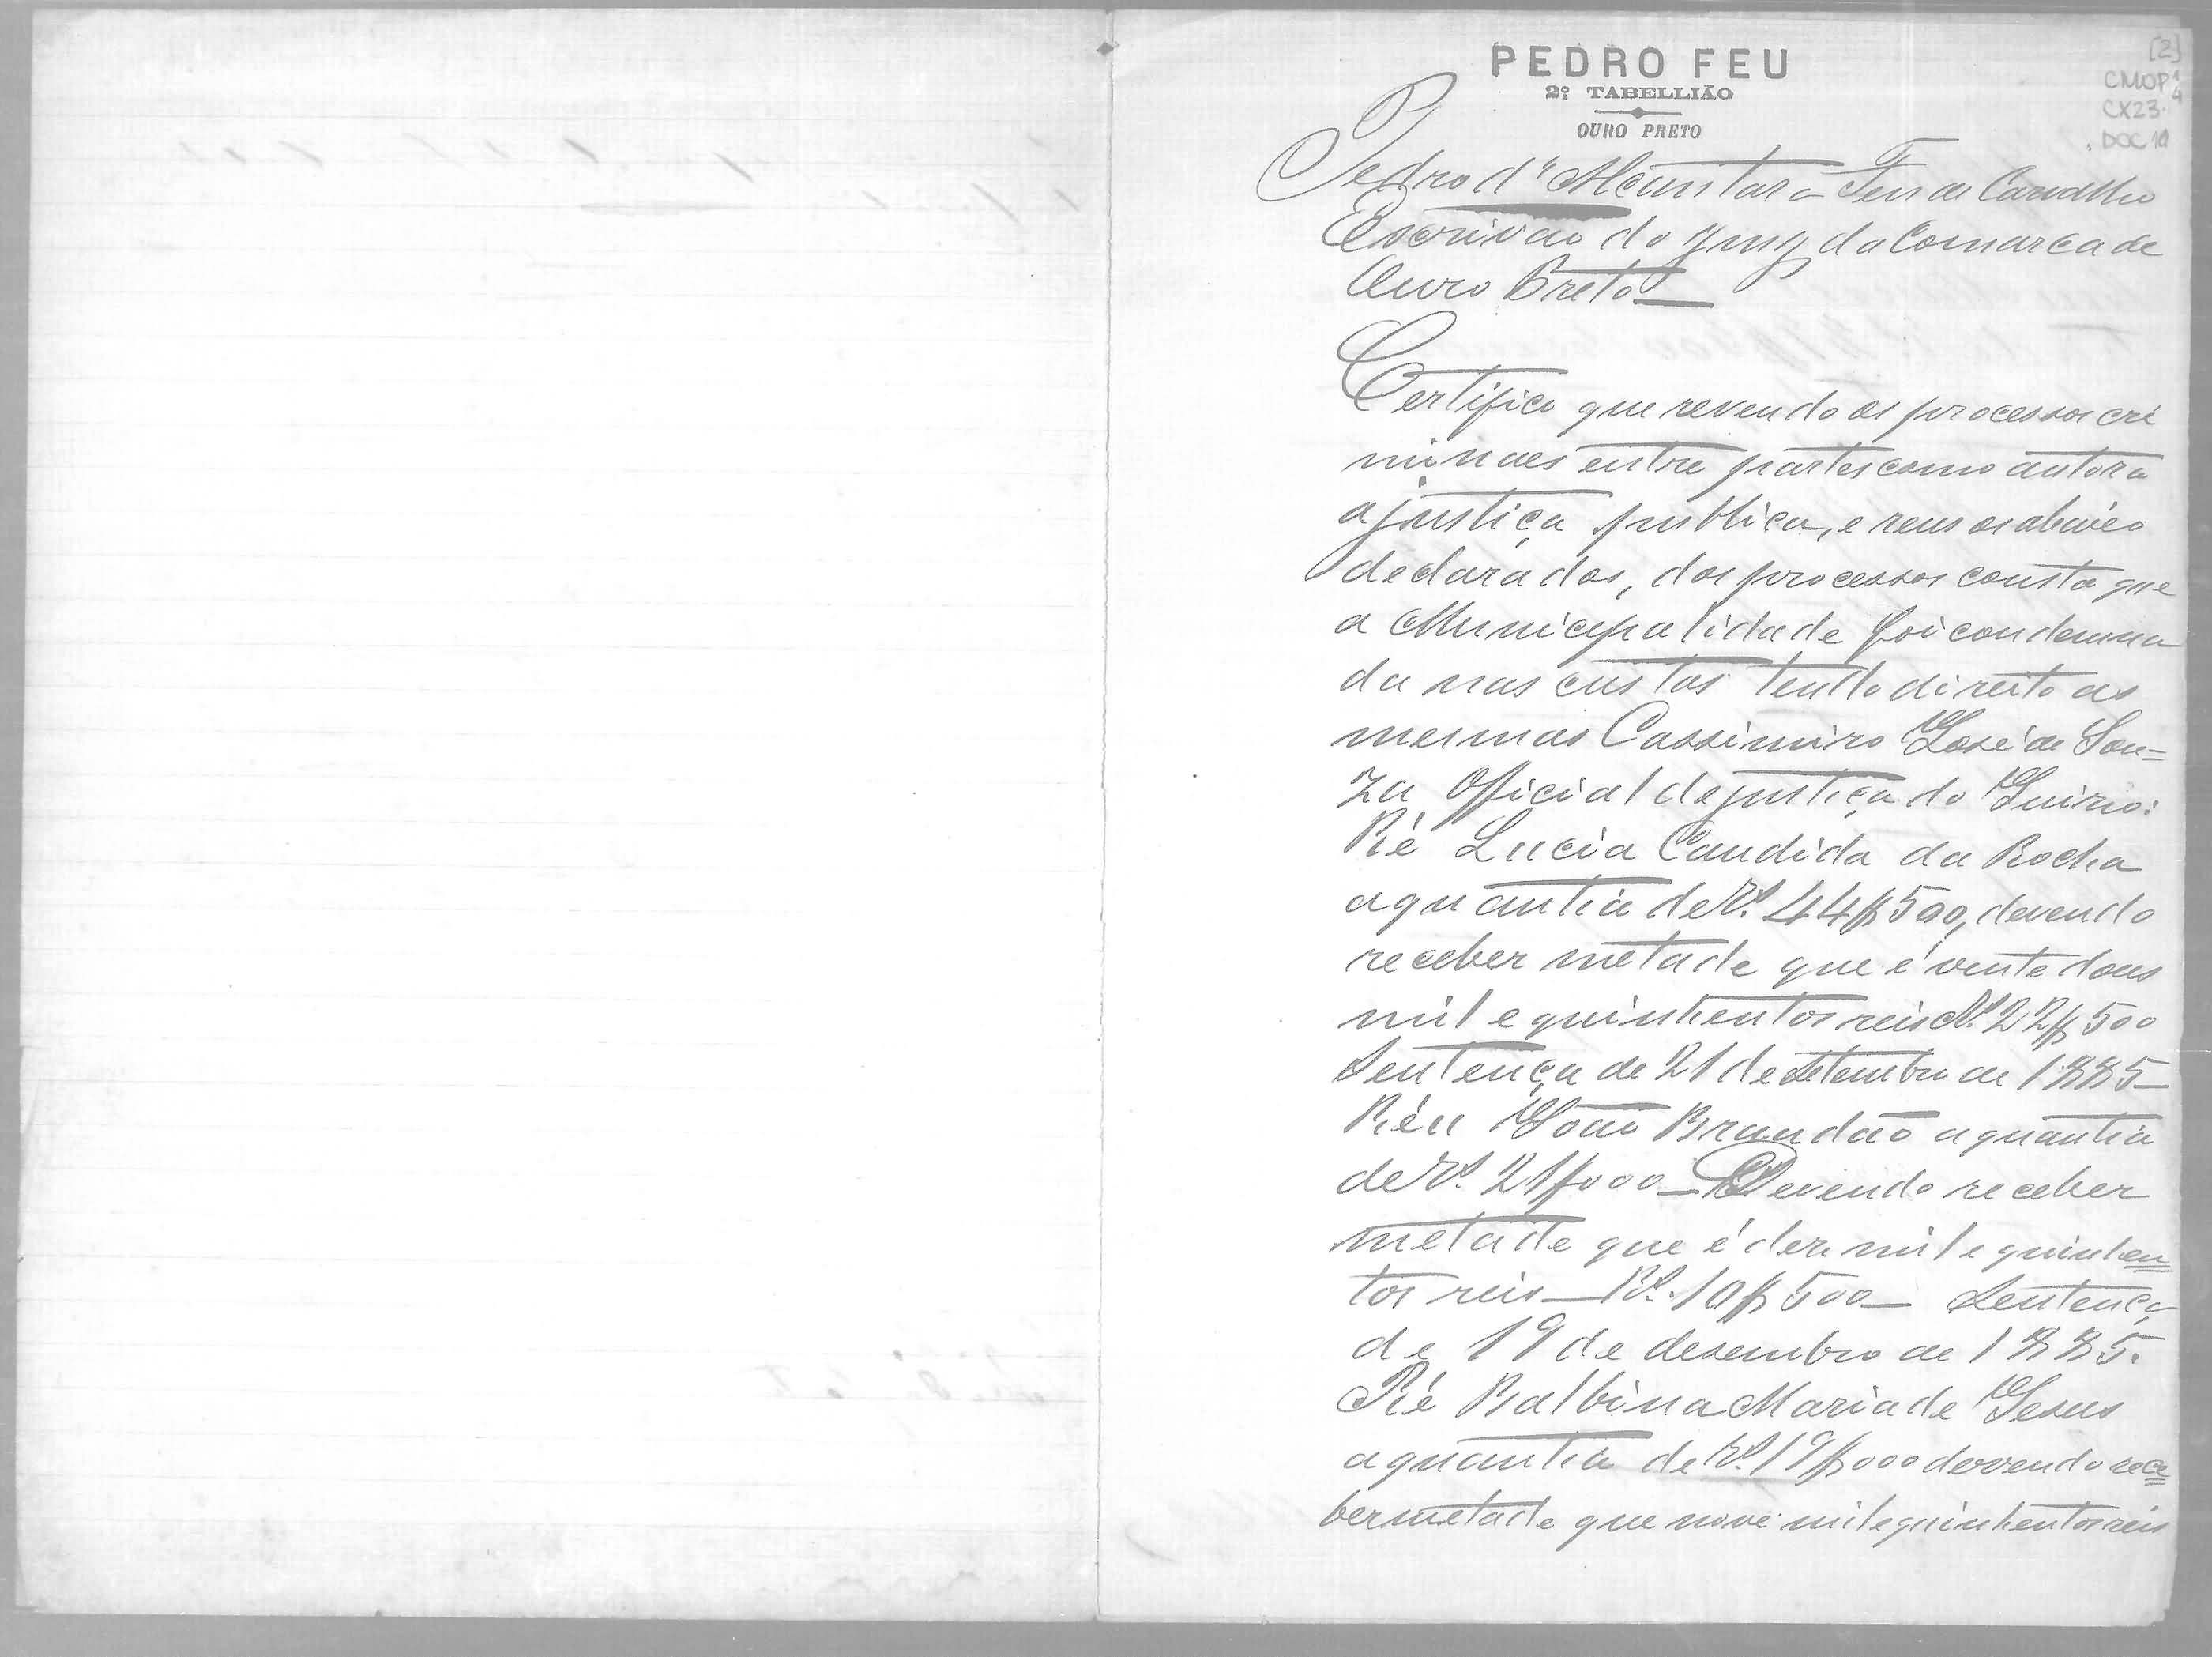 PEDRO FEU
2º TABELLIÃO
OURO PRETO
[2]
CMOP 1/4
CX23.
DOC 10
Pedro d'Alcantara Feu de Carvalho
Escrivão do Jury da Comarca de
Ouro Preto—
Certifico que revendo os processos cri
minaes entre partes como autora
a justiça publica, e reus os abaixo
declarados, dos processos consta que
a Municipalidade foi condemna
da nas custas tendo direito as
mesmas Cassimiro José de Sou=
za Official de justiça do Juizo:
Ré Lucia Candida da Rocha
a quantia de Rs. 44$500, devendo
receber metade que é vente dous
mil e quinhentos reis Rs. 22$500
Sentença de 21 de Setembro de 1885—
Réu João Brandão a quantia
de Rs. 21$000—Devendo receber
metade que é dez mil e quinhen=
tos reis—Rs. 10$500— Sentença
de 19 de desembro de 1885.
Ré Balbina Maria de Jesus
a quantia de Rs. 19$000 devendo rece=
ber metade que nove mil e quinhentos reis